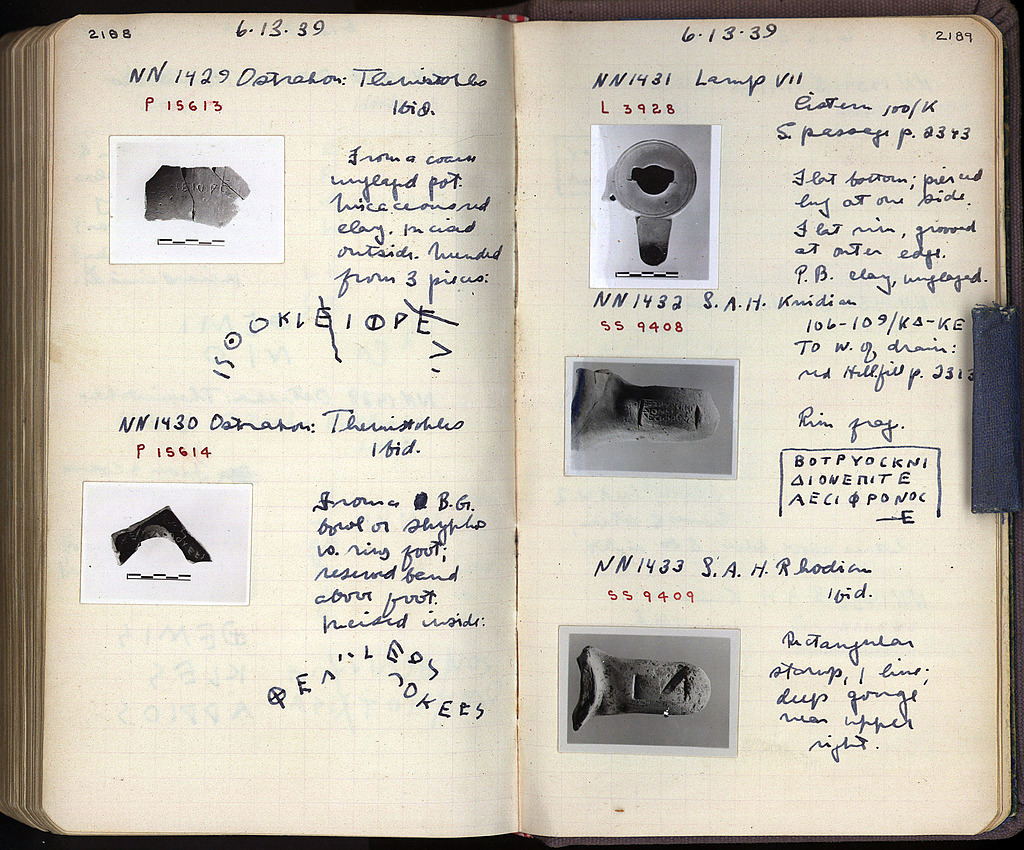 2188
6·13·39
NN 1429 Ostrakon: Themistokles
P 15613
Ibid.
From a coarse
unglazed pot.
Micaceous red
clay. Incised
outside. Mended
from 3 pieces:
ΟΚLΕΙΟΡΕ
NN 1430 Ostrakon: Themistokles
P 15614
Ibid.
From a B.G.
bowl or skyphos
w. ring foot;
reserved band
above foot.
Incised inside:
⊗ Ε
ΟΚΕΕS
2189
6·13·39
NN 1431 Lamp VII
L 3928
Cistern 100/K
S. passage p. 2343
Flat bottom; pierced
lug at one side.
Flat rim, grooved
at outer edge.
P.B. clay, unglazed.
NN 1432 S.A.H. Knidian
SS 9408
106-109/ΚΔ-ΚΕ
To W. of drain:
red Hell. fill p. 2313
Rim frag.
ΒΟΤΡΥΟCΚΝΙ
ΔΙΟΝΕΠΙΤΕ
ΛΕCΙΦΡΟΝΟC
—Ε
NN 1433 S.A.H. Rhodian
SS 9409
Ibid.
Rectangular
stamp, 1 line;
deep gouge
near upper
right.